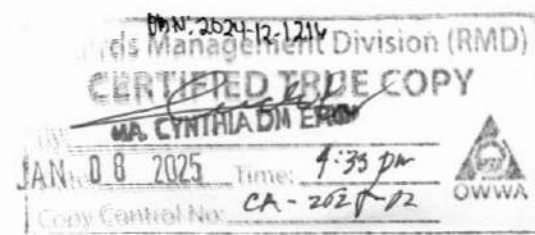 2024-12-1216
ds Management Division (RMD)
CERTIFIED TRUE COPY
MA. CYNTHIA DM
JAN 08 2025 Time: 4:33 pm
OWWA
Copy Control No: CA - 202